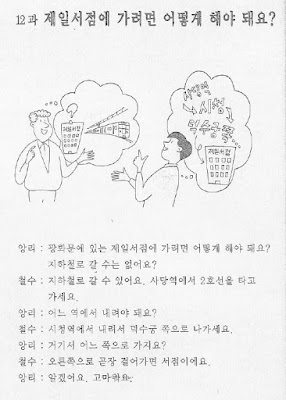 12과 제일서점에 가려면 어떻게 해야 돼요?
제일서점
사당역
시청
덕수궁쪽
제일서점
앙리 : 광화문에 있는 제일서점에 가려면 어떻게 해야 돼요?
지하철로 갈 수는 없어요?
철수 : 지하철로 갈 수 있어요. 사당역에서 2호선을 타고
가세요.
앙리 : 어느 역에서 내려야 돼요?
철수 : 시청역에서 내리서 덕수궁 쪽으로 나가세요.
앙리 : 거기서 어느 쪽으로 가지요?
철수 : 오른쪽으로 곧장 걸어가면 서점이에요.
앙리 : 알겠어요. 고마워요.